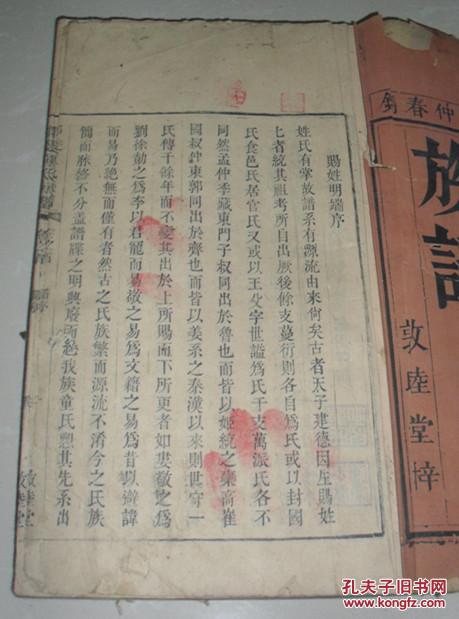 仲春
族譜
敦睦堂梓
賜姓明端序
姓氏有掌故譜系有源流由來尚矣古者天子建德因生賜姓
七者統其祖考所自出厥後餘支蔓衍則各自爲氏或以封國
氏食邑氏居官氏又或以王父字世謚爲氏千支萬派氏各不
同然孟仲季臧東門子叔同出於魯也而皆以姬統之欒高崔
國叔仲東郭同出於齊也而皆以姜系之秦漢以來則世守一
氏傳千餘年而不變其出於上所賜而下所更者如婁敬之爲
劉徐勣之爲李以君寵而易敬之易爲文籍之易爲昔以辟諱
而易乃絶無而僅有者然古之氏族繁而源流不淆今之氏族
簡而脈終不分蓋譜牒之明興廢而絶我族童氏愬其先系出
敦睦堂
孔夫子旧书网
www.kongfz.com